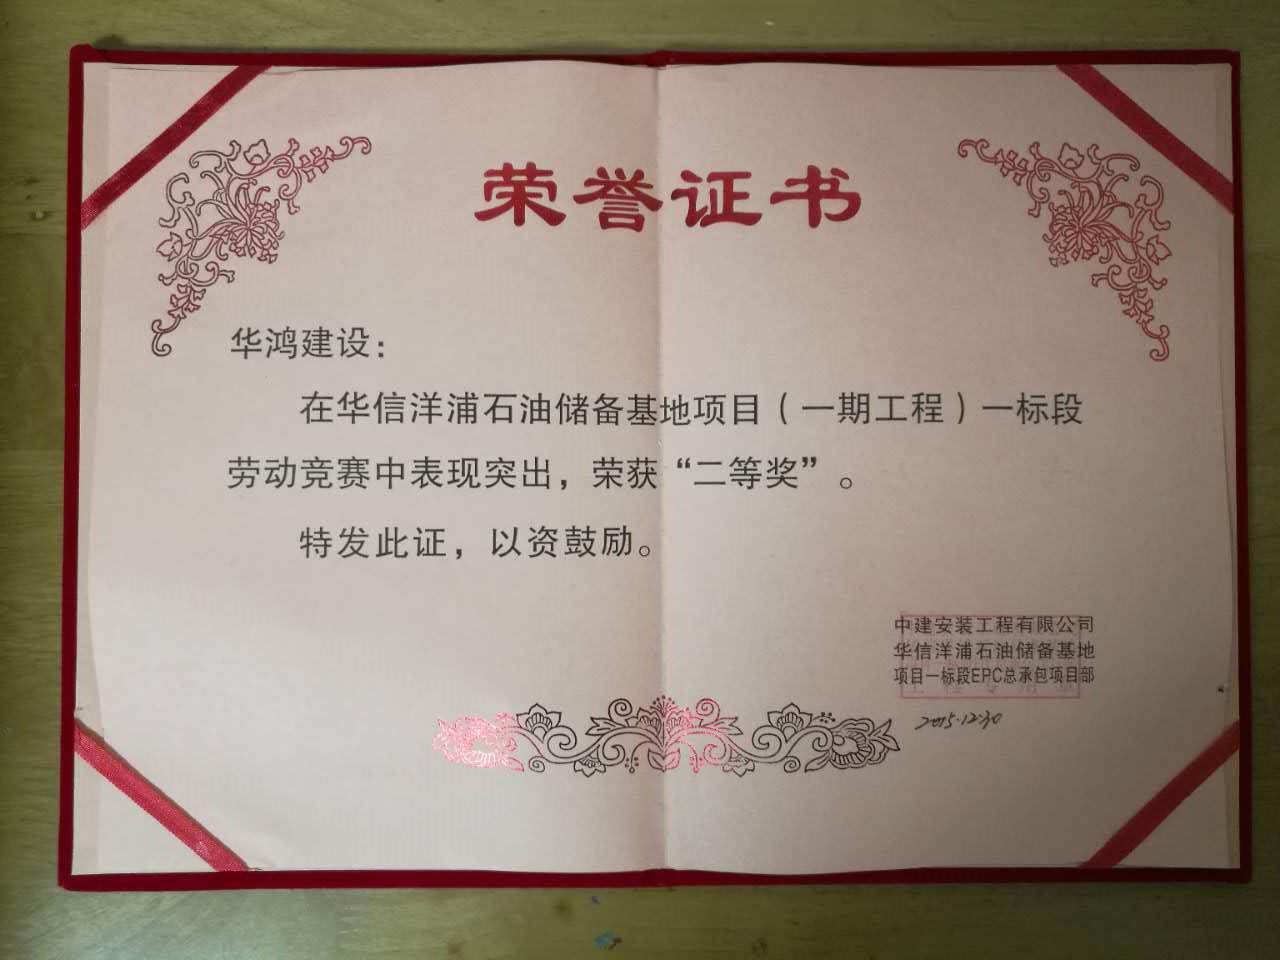 荣誉证书
华鸿建设：
在华信洋浦石油储备基地项目（一期工程）一标段
劳动竞赛中表现突出，荣获“二等奖”。
特发此证，以资鼓励。
中建安装工程有限公司
华信洋浦石油储备基地
项目一标段EPC总承包项目部
2015.12.30